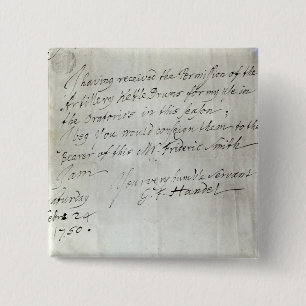 I having received the Permission of the
Artillery Kettle Drums for my use in
the Oratorios in this Season;
I beg you would consign them to the
Bearer of this Mr. Frederic Smith
I am
Your very humble Servant
G. F. Handel
Saturday
Febr 24
1750.